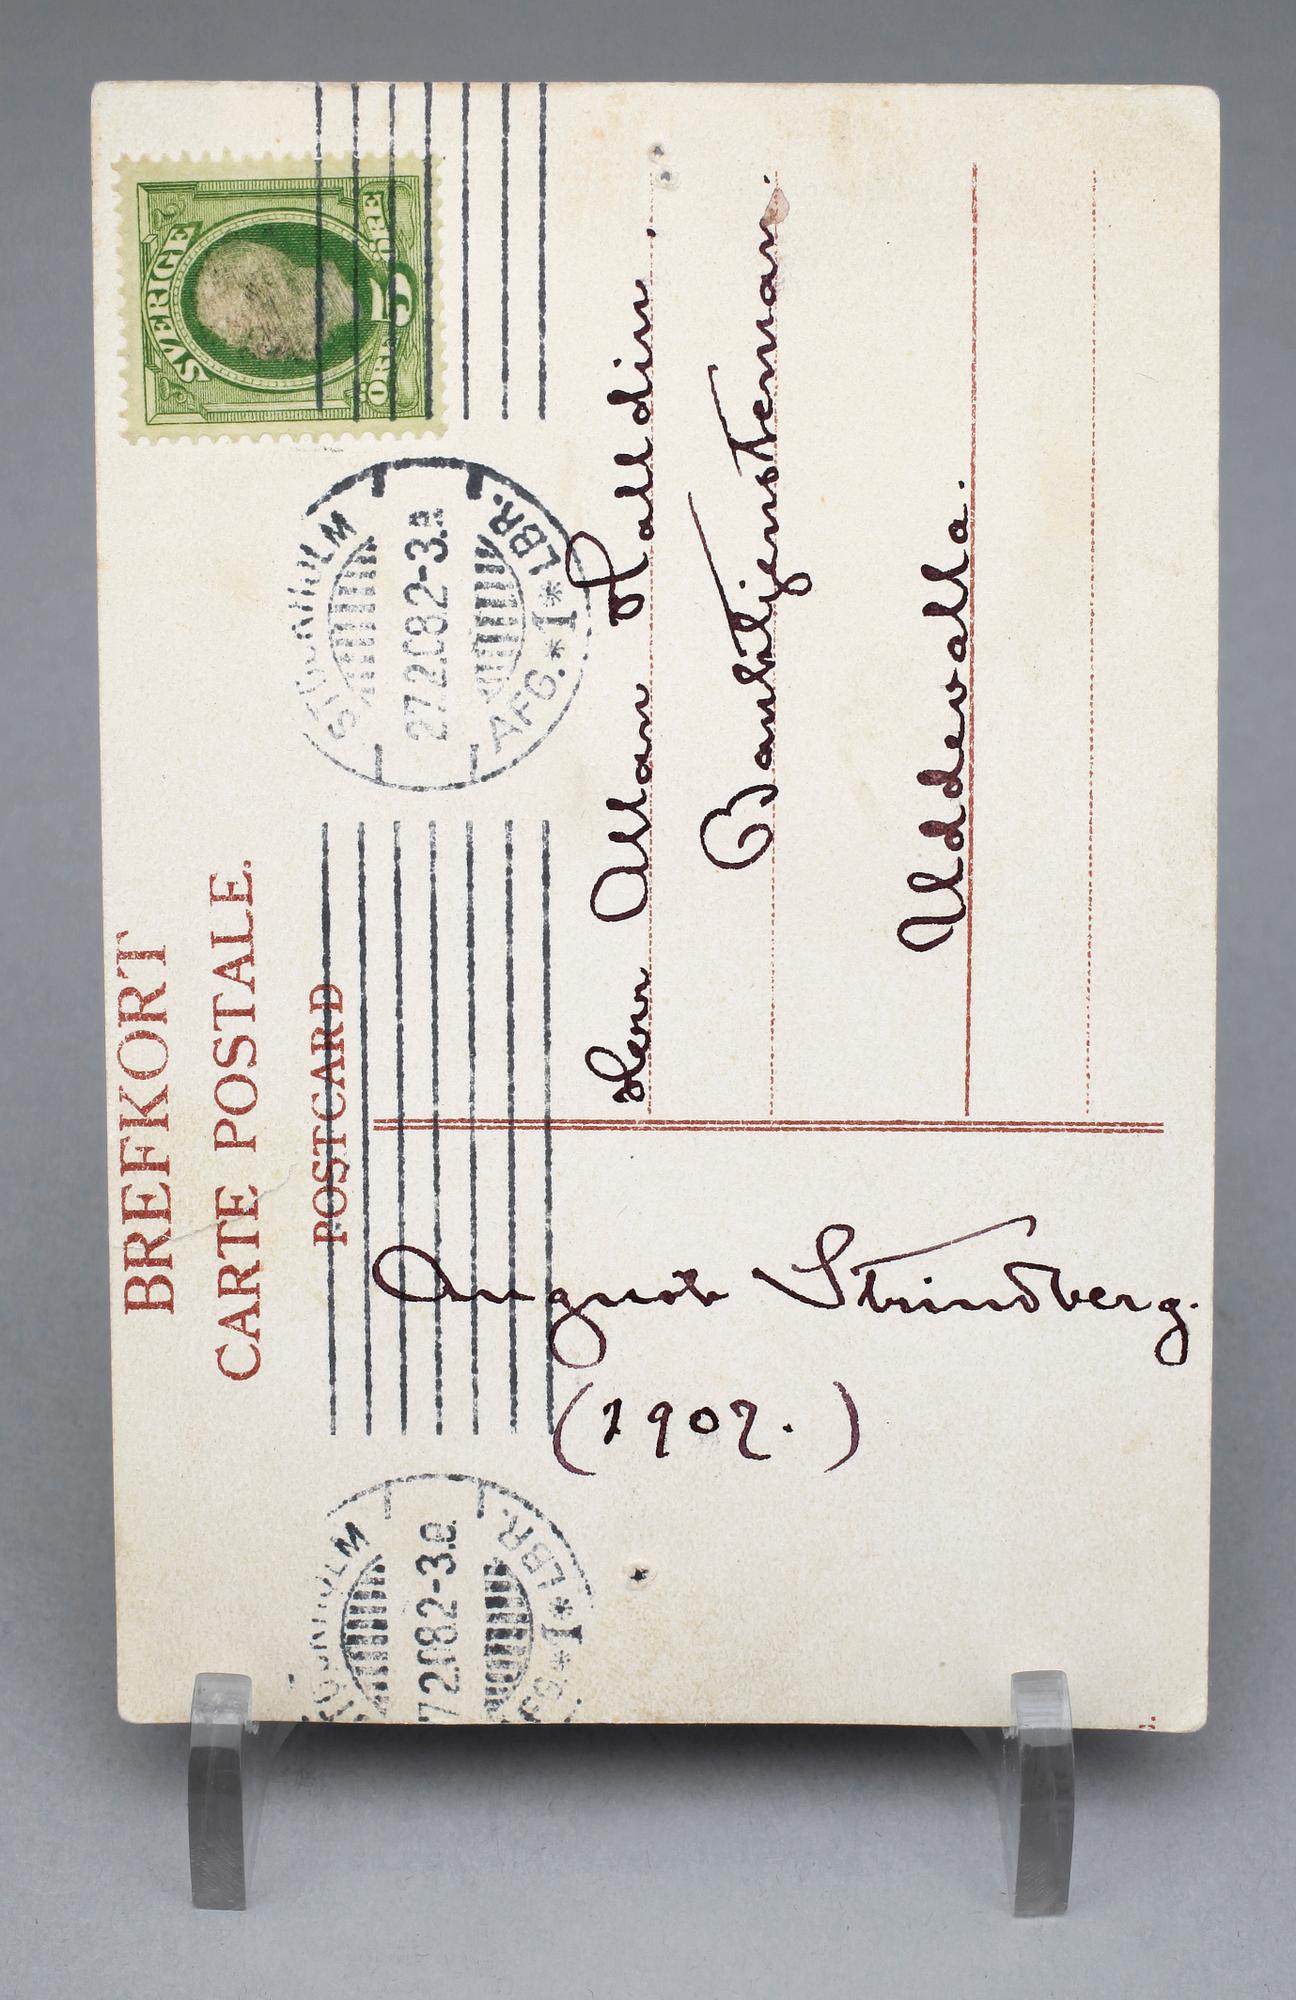 BREFKORT
CARTE POSTALE.
POSTCARD
SVERIGE
5
ÖRE ÖRE
STOCKHOLM
27.2.08.2-3.a
AFG. * 1 * LBR.
STOCKHOLM
7.2.08.2-3.a
* 1 * LBR.
Herr Allan Halldin.
Banktjensteman.
Uddevalla.
August Strindberg.
(1907.)